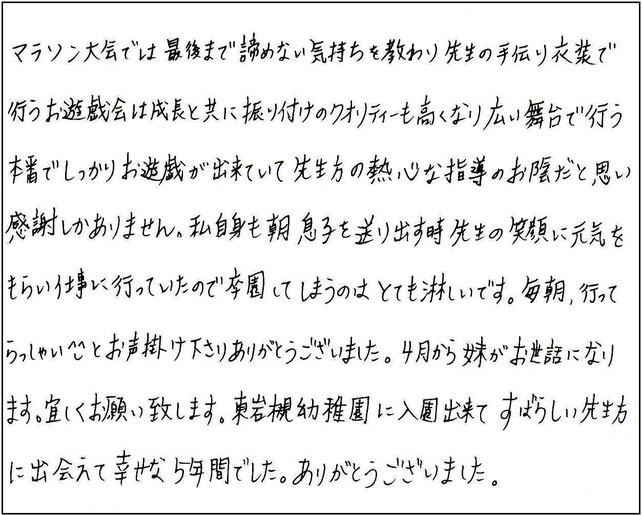 マラソン大会では最後まで諦めない気持ちを教わり先生の手伝り衣装で
行うお遊戯会は成長と共に振り付けのクオリティーも高くなり広い舞台で行う
本番でしっかりお遊戯が出来ていて先生方の熱心な指導のお陰だと思い
感謝しかありません。私自身も朝息子を送り出す時先生の笑顔に元気を
もらい仕事に行っていたので卒園してしまうのはとても淋しいです。毎朝、行って
らっしゃい^^とお声掛け下さりありがとうございました。4月から妹がお世話になり
ます。宜しくお願い致します。東岩槻幼稚園に入園出来てすばらしい先生方
に出会えて幸せな5年間でした。ありがとうございました。